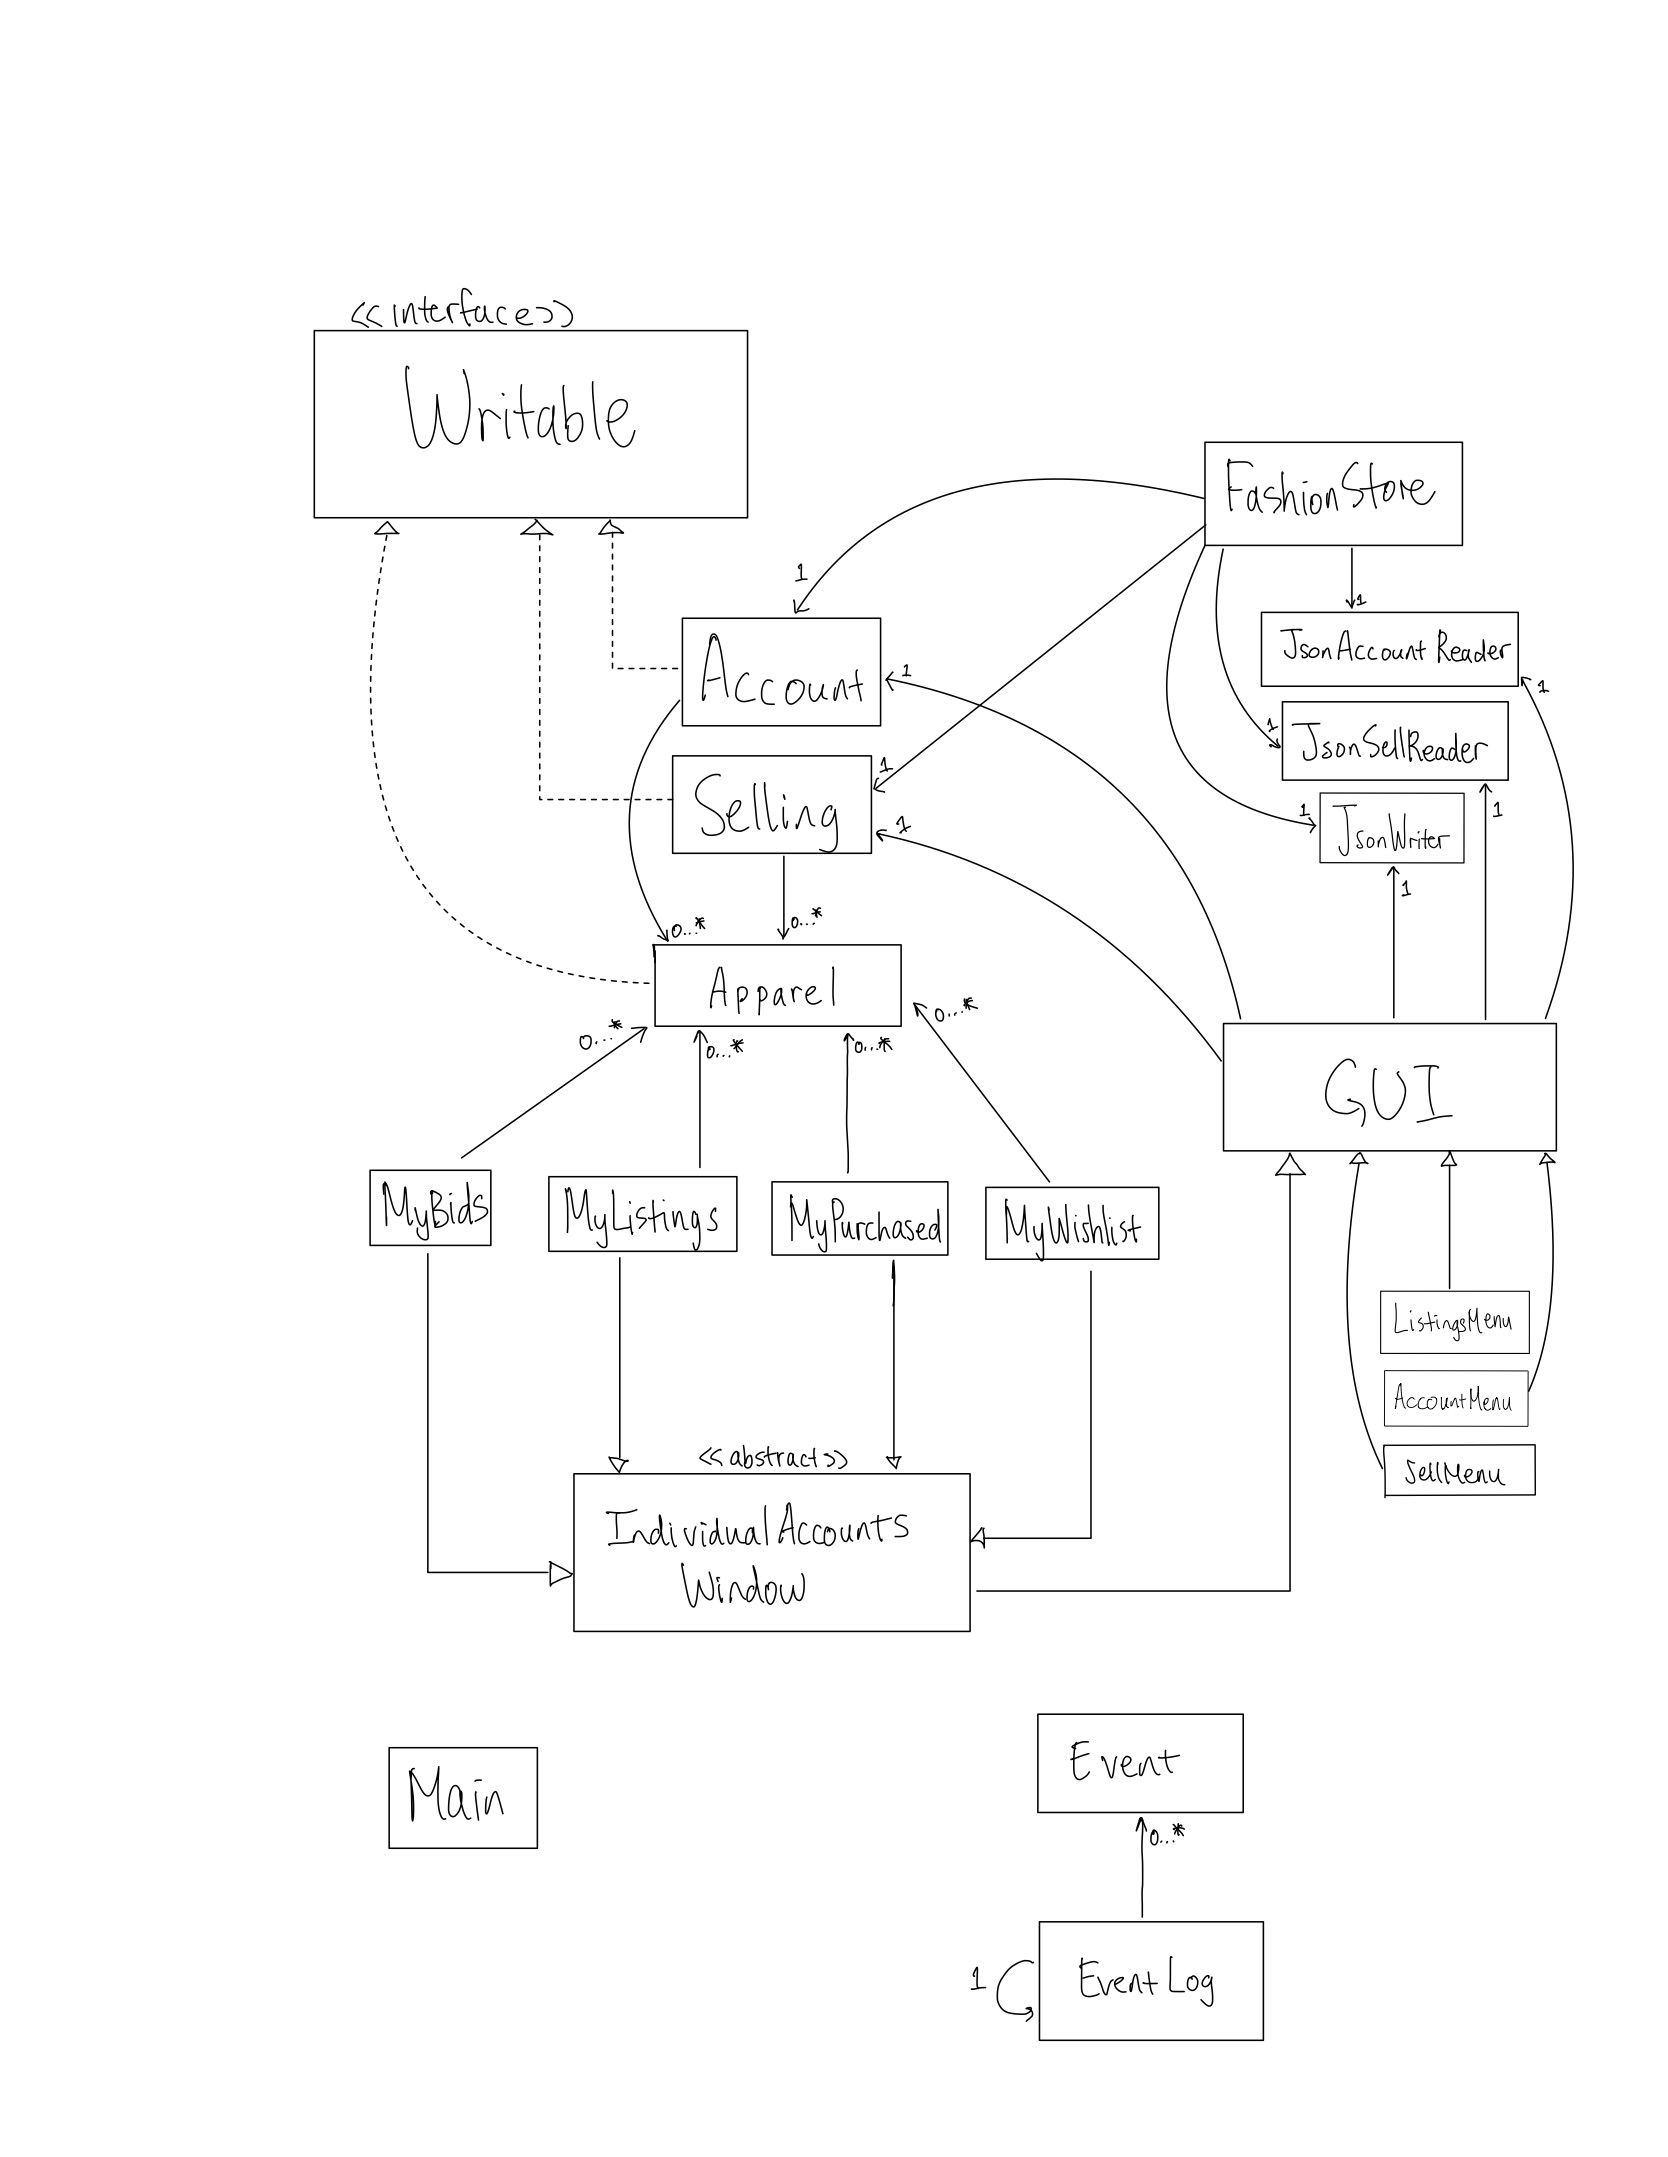 <<interface>>
Writable
FashionStore
1
Account
1
1
JsonAccountReader
1
JsonSellReader
1
1
Selling
1
1
1
JsonWriter
1
0...*
0...*
Apparel
0...*
0...*
0...*
0...*
GUI
MyBids
MyListings
MyPurchased
MyWishlist
ListingsMenu
AccountMenu
SellMenu
<<abstract>>
IndividualAccounts
Window
Main
Event
0...*
EventLog
1